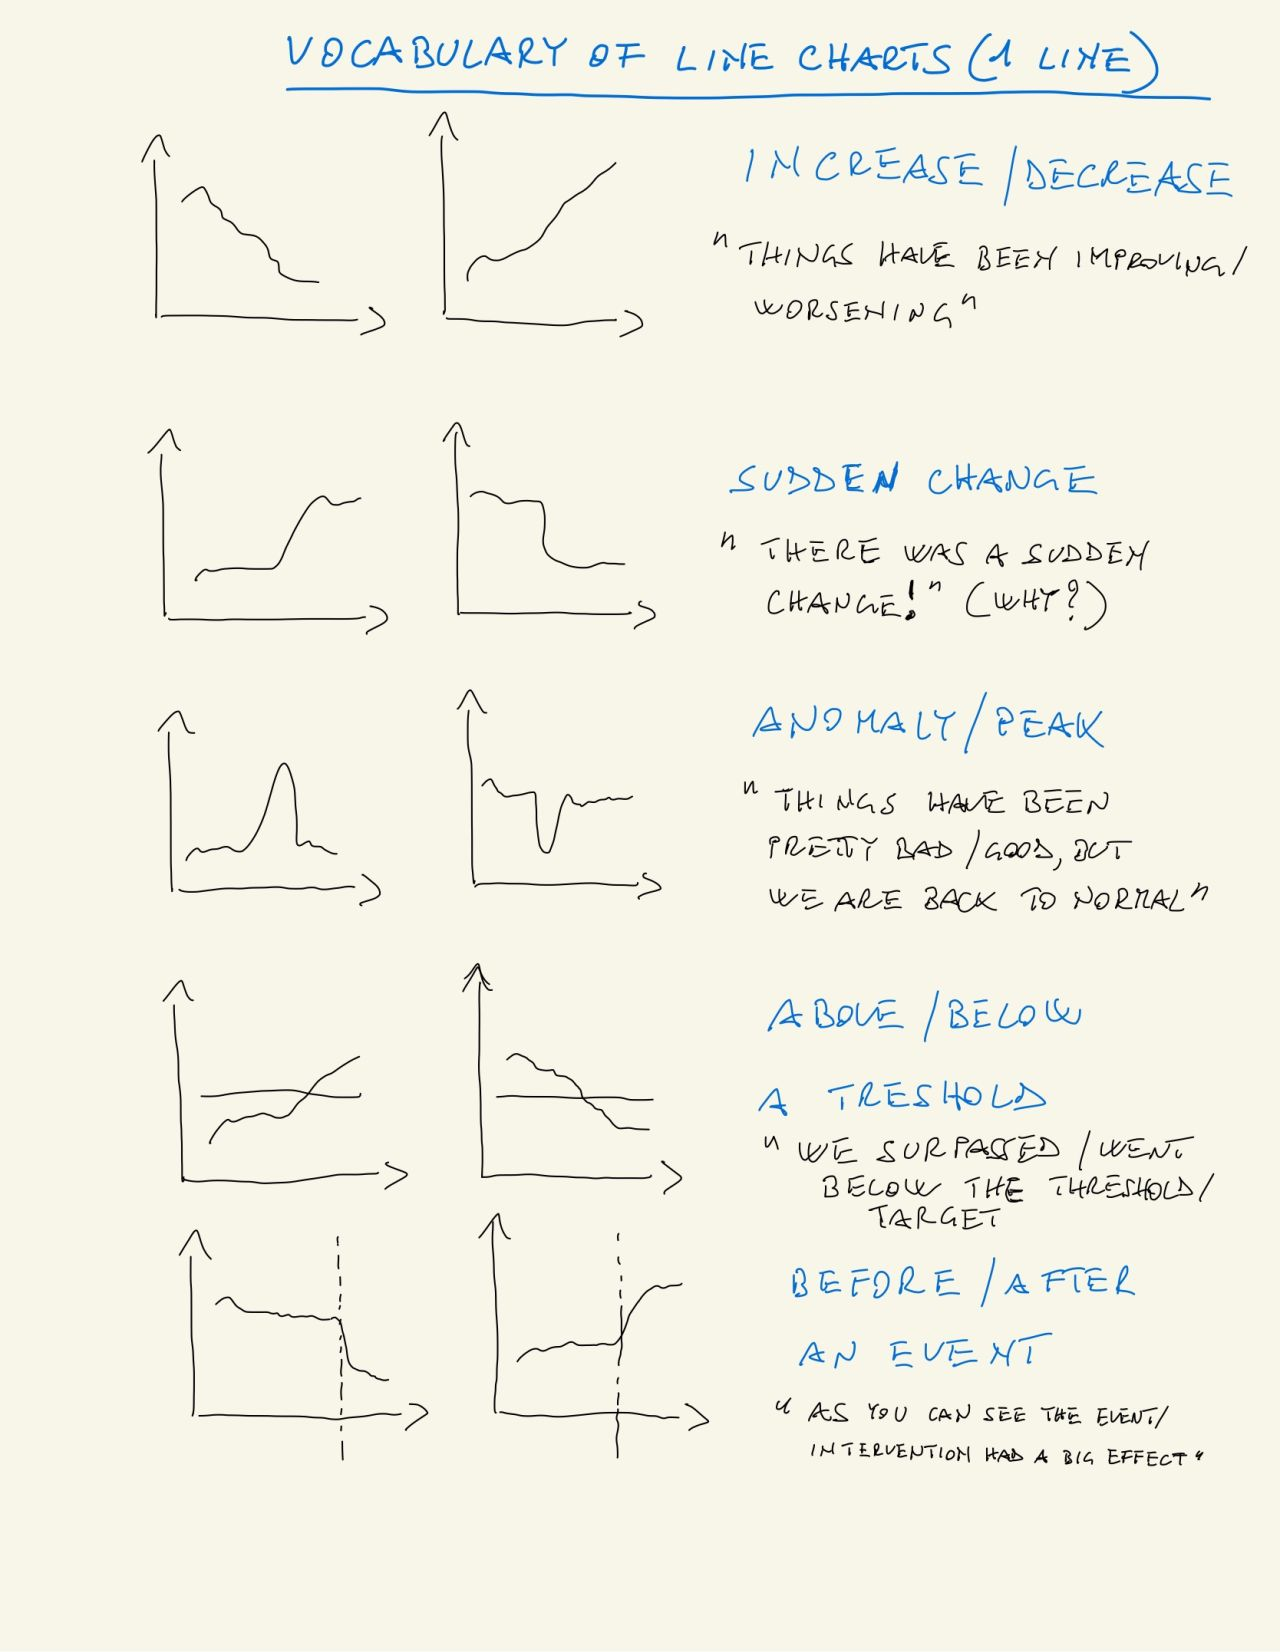 VOCABULARY OF LINE CHARTS (1 LINE)
INCREASE / DECREASE
"THINGS HAVE BEEN IMPROVING /
WORSENING"
SUDDEN CHANGE
"THERE WAS A SUDDEN
CHANGE!" (WHY?)
ANOMALY / PEAK
"THINGS HAVE BEEN
PRETTY BAD / GOOD, BUT
WE ARE BACK TO NORMAL"
ABOVE / BELOW
A TRESHOLD
"WE SURPASSED / WENT
BELOW THE THRESHOLD /
TARGET
BEFORE / AFTER
AN EVENT
"AS YOU CAN SEE THE EVENT /
INTERVENTION HAD A BIG EFFECT"